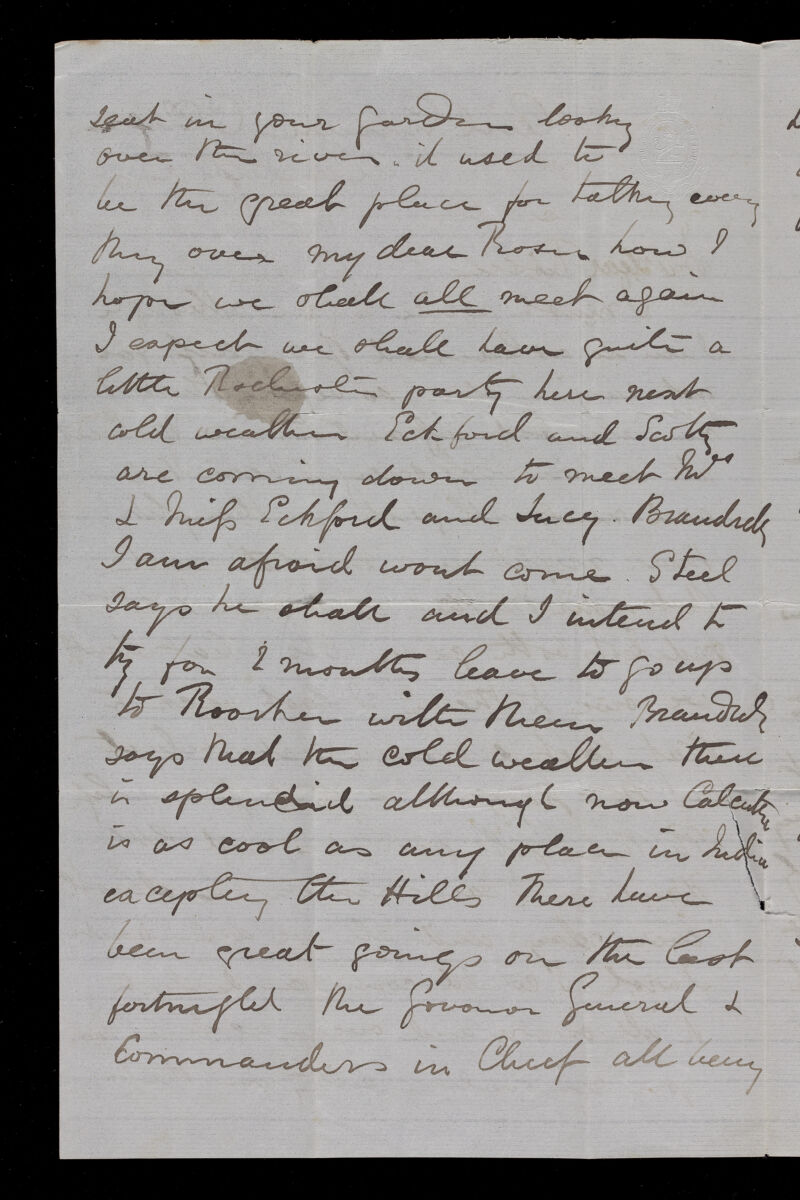 seat in your garden looking
over the river. it used to
be the great place for talking every
thing over my dear Rosie how I
hope we shall all meet again
I expect we shall have quite a
little Rochester party here next
cold weather Eckford and Scotty
are coming down to meet Mrs
& Miss Eckford and Lucy. Brandreth
I am afraid wont come. Steel
says he shall and I intend to
try for 2 months leave to go up
to with them Brandreth
says that the cold weather there
is splendid although now Calcutta
is as cool as any place in India
excepting the Hills There have
been great goings on the last
fortnight the Govonor General &
Commanders in Chief all being